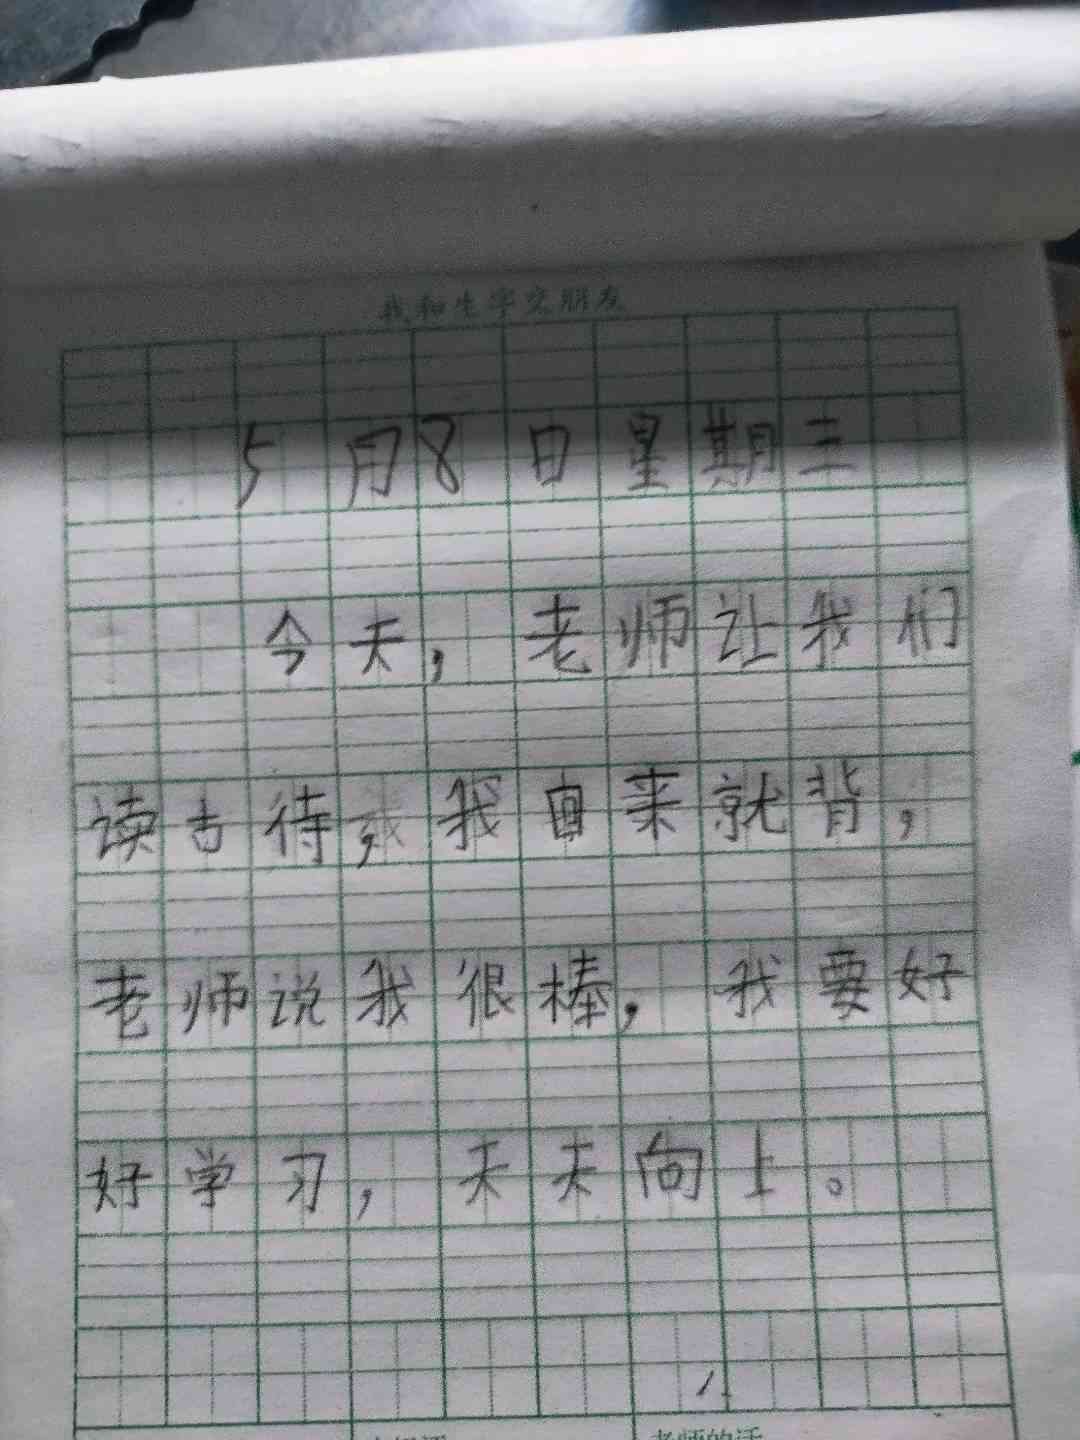 我和生字交朋友
5月8日星期三
今天，老师让我们
读古待，我直来就背，
老师说我很棒，我要好
好学习，天天向上。
老师的话